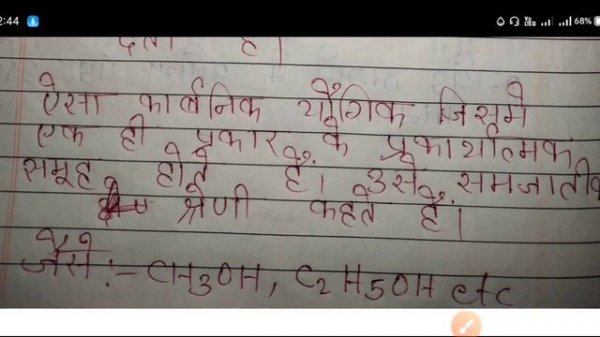 2:44
68%
है।
ऐसा कार्बनिक यौगिक जिसमे
एक ही प्रकार के प्रकार्यात्मक
समूह होते हैं। उसे समजातीय
श्रेणी कहते हैं।
जैसे :- CH3OH, C2H5OH etc